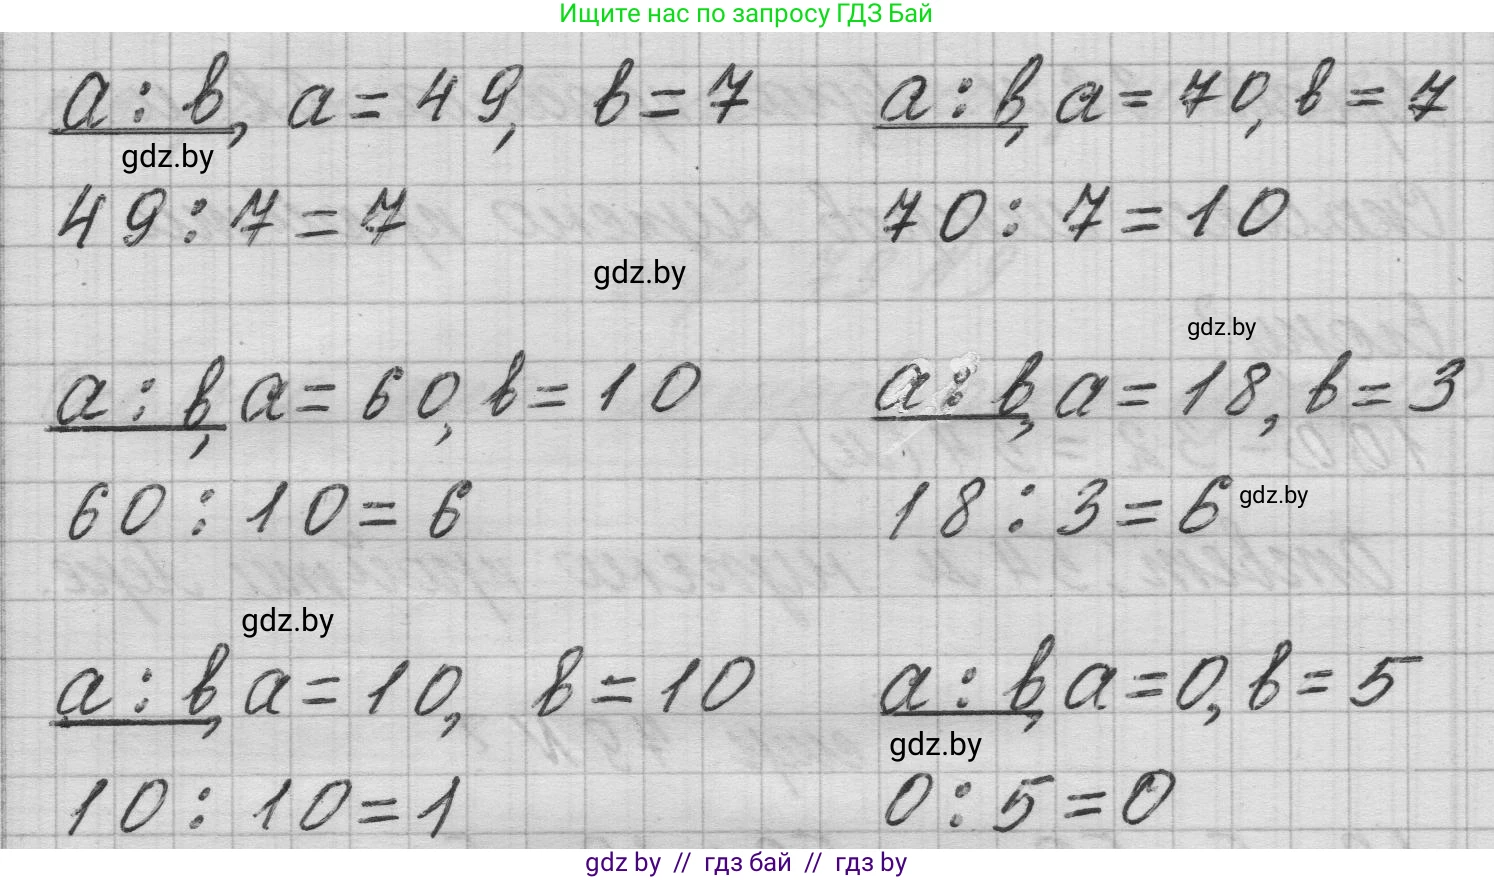 Ищите нас по запросу ГДЗ Бай
a : b, a = 49, b = 7
a : b, a = 70, b = 7
gdz.by
49 : 7 = 7
70 : 7 = 10
gdz.by
gdz.by
a : b, a = 60, b = 10
a : b, a = 18, b = 3
60 : 10 = 6
18 : 3 = 6
gdz.by
gdz.by
a : b, a = 10, b = 10
a : b, a = 0, b = 5
gdz.by
10 : 10 = 1
0 : 5 = 0
gdz by // гдз бай // гдз by